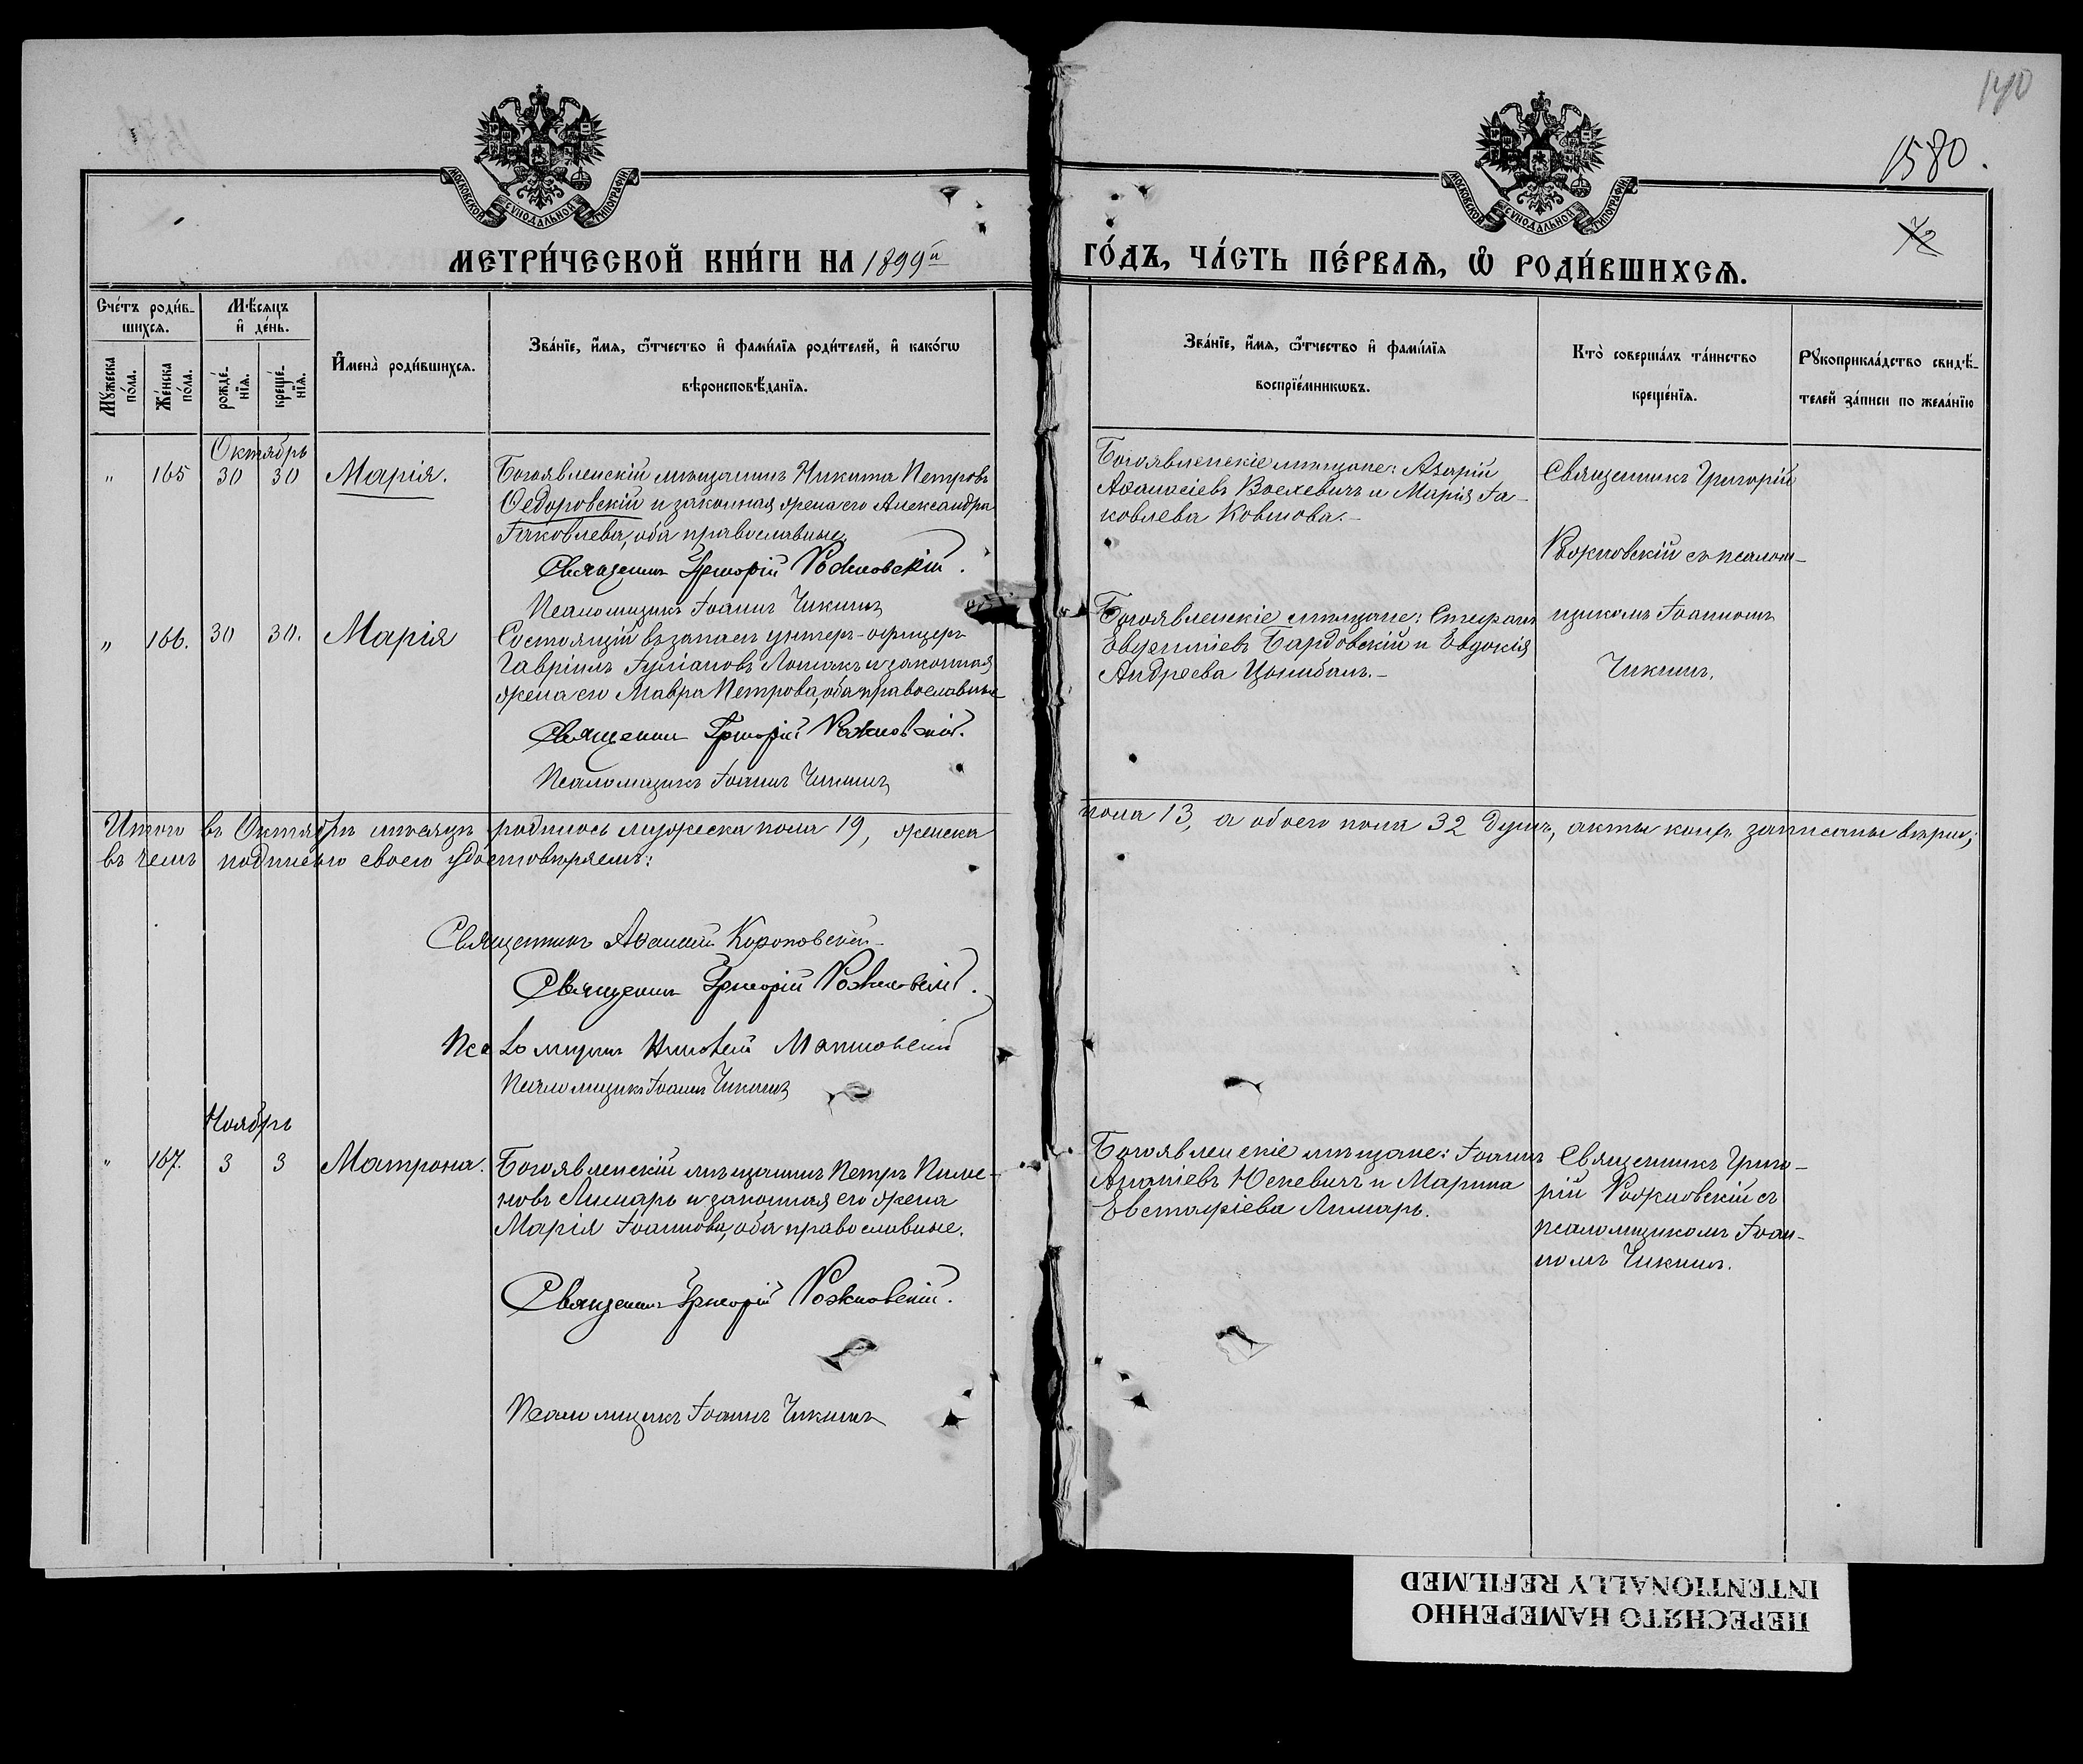 140
1580.
МОСКОВСКОЙ СУНОДАЛЬНОЙ ТИПОГРАФІИ
МОСКОВСКОЙ СУНОДАЛЬНОЙ ТИПОГРАФІИ
МЕТРИ́ЧЕСКОЙ КНИ́ГИ НА 1899й
ГО́ДЪ, ЧА́СТЬ ПЕ́РВАѦ, Ѡ҆ РОДИ́ВШИХСѦ.
Сче́тъ роди́в-
шихсѧ.
Мѣ́сѧцъ
и҆ де́нь.
Мꙋ́жеска
по́ла.
Же́нска
по́ла.
рожде́-
нїѧ.
креще́-
нїѧ.
И҆мена̀ роди́вшихсѧ.
Зва́нїе, и҆́мѧ, ѻ҆́тчество и҆ фами́лїѧ роди́телей, и҆ како́гѡ
вѣроисповѣ́данїѧ.
Зва́нїе, и҆́мѧ, ѻ҆́тчество и҆ фами́лїѧ
воспрїе́мникѡвъ.
Кто̀ соверша́лъ та́инство
креще́нїѧ.
Рꙋкоприкла́дство свидѣ́-
телей за́писи по жела́нїю
Октябрь
" 165 30 30 Марія.
Богоявленскій мѣщанинъ Никита Петровъ
Ѳедоровскій и законная жена его Александра
Іаковлева, оба православные.
Священникъ Григорій Рожновскій.
Псаломщикъ Іоаннъ Чикинъ
Богоявленскіе мѣщане: Азарій
Аѳанасіевъ Воехевичъ и Марія Іа-
ковлева Ковшова.-
Священникъ Григорій
Рожновскій съ псалом-
щикомъ Іоанномъ
Чикинъ.
" 166. 30 30. Марія
Состоящій въ запасѣ унтеръ-офицеръ
Гавріилъ Іуліановъ Лошакъ и законная
жена его Мавра Петрова, оба православные
Священникъ Григорій Рожновскій.
Псаломщикъ Іоаннъ Чикинъ
Богоявленскіе мѣщане: Стефанъ
Евфиміевъ Бардовскій и Евдокія
Андреева Цымбалъ.-
Итого въ Октябрѣ мѣсяцѣ родилось мужеска пола 19, женска
пола 13, а обоего пола 32 душъ, акты коихъ записаны вѣрно;
въ чемъ подписью своею удостовѣряемъ:
Священникъ Аѳанасій
Священникъ Григорій Рожновскій.
Псаломщикъ
Псаломщикъ Іоаннъ Чикинъ
Ноябрь
" 167. 3 3 Матрона.
Богоявленскій мѣщанинъ Петръ Пиме-
новъ Лимарь и законная его жена
Марія Іоаннова, оба православные.
Священникъ Григорій Рожновскій.
Псаломщикъ Іоаннъ Чикинъ
Богоявленскіе мѣщане: Іоаннъ
Ананіевъ Юскевичъ и Марина
Евстафіева Лимарь.
Священникъ Григо-
рій Рожновскій съ
псаломщикомъ Іоан-
номъ Чикинъ.
ПЕРЕСНЯТО НАМЕРЕННО
INTENTIONALLY REFILMED